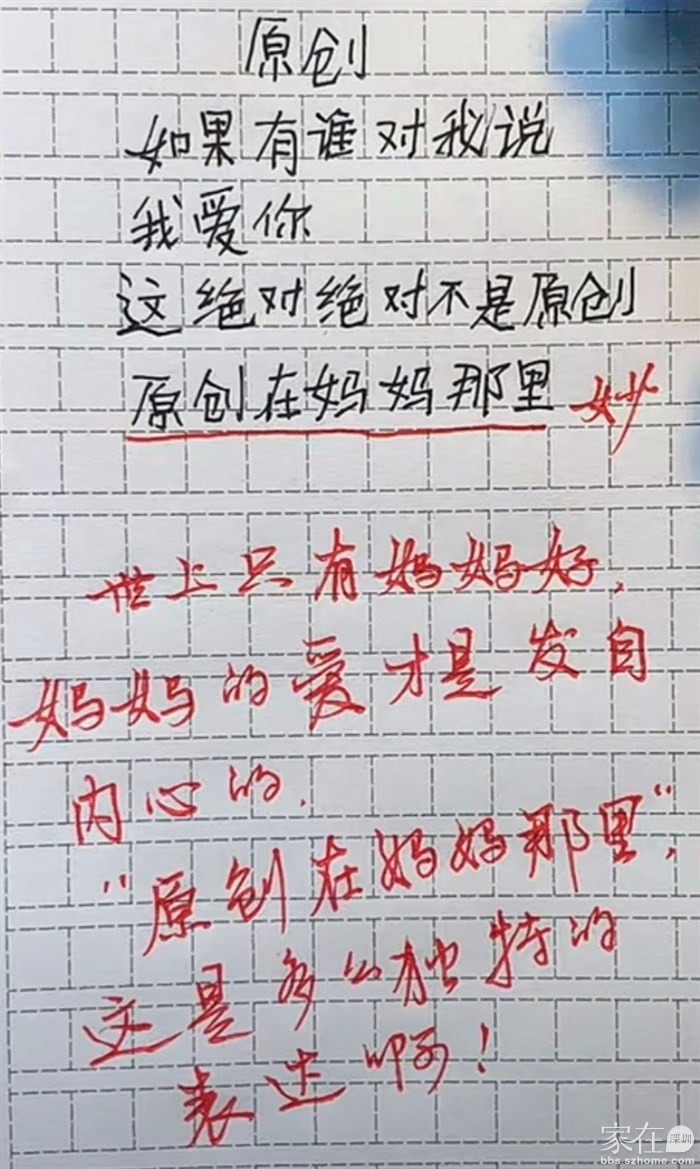 原创
如果有谁对我说
我爱你
这绝对绝对不是原创
原创在妈妈那里 妙
世上只有妈妈好,
妈妈的爱才是发自
内心的.
“原创在妈妈那里”,
这是多么独特的
表达啊!
家在深圳
bbs.szhome.com